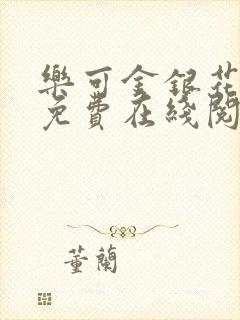 樂可金銀花
免費在綫閱
董蘭